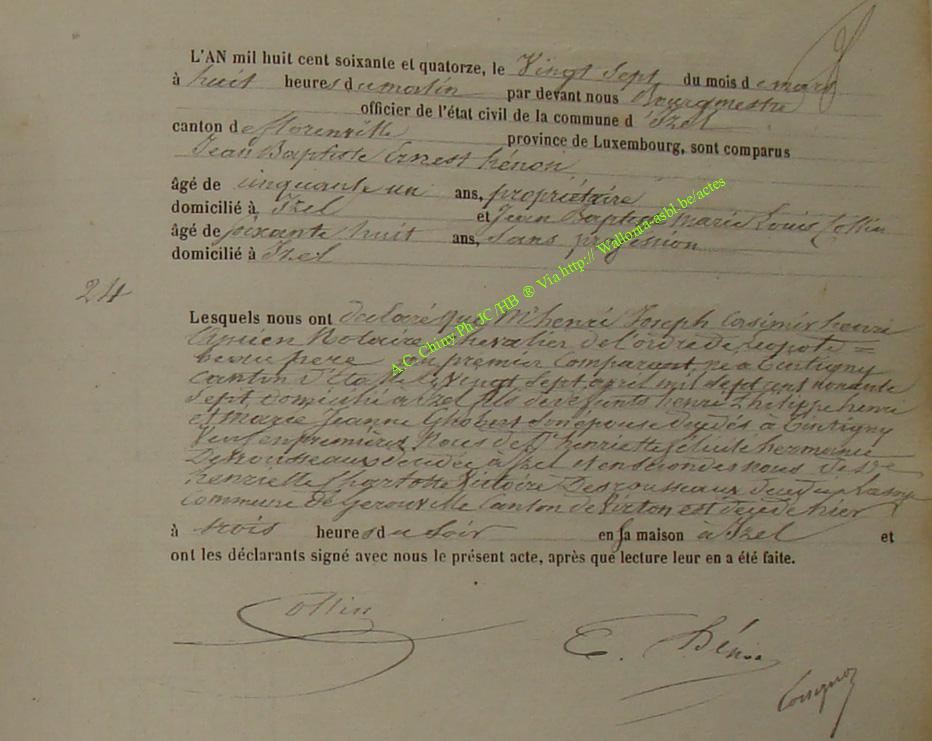 L'AN mil huit cent soixante et quatorze, le Vingt Sept du mois de mars
à huit heures du matin par devant nous Bourgmestre
officier de l'état civil de la commune d'Izel
canton de florenville province de Luxembourg, sont comparus
Jean Baptiste Ernest hénon
âgé de cinquante un ans, propriétaire
domicilié à Izel et Jean Baptiste Marie Louis Collin
âgé de soixante huit ans, Sans profession
domicilié à Izel
24
Lesquels nous ont declaré que Mr henri Joseph Casimir henri
ancien Notaire Chevalier de l'ordre de Leopold
beau pere au premier Comparant, né a Tintigny
Canton d'Etalle le Vingt Sept avril mil sept cent nonante
Sept domicilié a Izel fils de defunts henri Philippe henri
et Marie Jeanne Ghobert Son épouse decedés à Tintigny
Veuf en premieres Noces de De henriette félicité hermance
Desrousseaux decedée à Izel et en secondes noces de De
henriette Charlotte Victoire Desrousseaux decedée
Commune de Gerouville Canton de Virton est decedé hier
à trois heures du Soir en sa maison à Izel et
ont les déclarants signé avec nous le présent acte, après que lecture leur en a été faite.
Collin
E. Hénon
A.C. Chiny Ph. JC/HB ® Via http:// Wallonia-asbl.be/actes